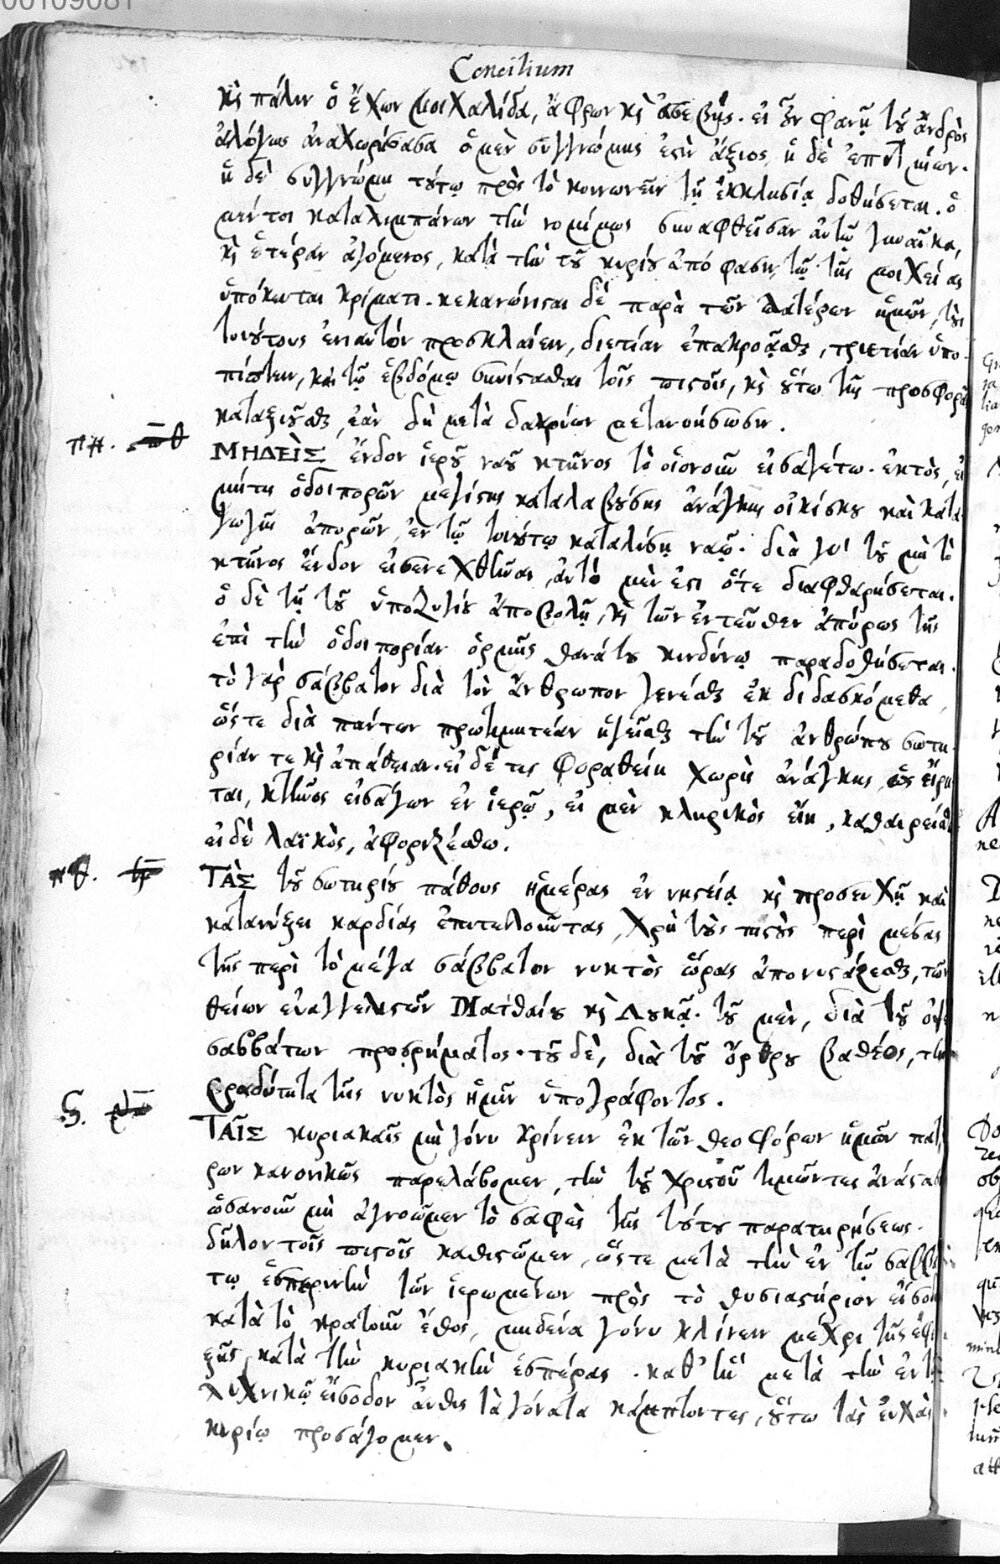 00109081
Concilium
κỳ πάλιν ὁ ἔχων μοιχαλίδα, ἄφρων κỳ ἀσεβής. εἰ ȣ̓͂ν φανῇ τȣ͂ ἀνδρὸς
ἀλόγως ἀναχωρήσασα ὁ μὲν συγγνώμης ἐστὶν ἄξιος, ἡ δὲ ἐπιτιμίων.
ἡ δὲ συγγνώμη τȣ́τῳ πρὸς τὸ κοινωνεῖν τῇ ἐκκλησίᾳ δοθήσεται. ὁ
μέντοι καταλιμπάνων τὴν νομίμως συναφθεῖσαν αὐτῷ γυναῖκα,
κỳ ἑτέραν ἀγόμενος, κατὰ τὴν τȣ͂ κυρίȣ ἀπόφασιν, τῷ τῆς μοιχείας
ὑπόκειται κρίματι. κεκανόνισται δὲ παρὰ τῶν πατέρων ἡμῶν, τȣ̀ς
τοιȣ́τους ἐνιαυτὸν προσκλαίειν, διετίαν ἐπακροᾶσθαι, τριετίαν ὑπο-
πίπτειν, καὶ τῷ ἑβδόμῳ συνίστασθαι τοῖς πιστοῖς, κỳ ȣ́τω τῆς προσφορᾶς
καταξιȣ͂σθαι, ἐὰν δὴ μετὰ δακρύων μετανοήσωσιν.
πη. πθ
ΜΗΔΕΙΣ ἔνδον ἱερȣ͂ ναȣ͂ κτῆνος τὸ οἱονοῦν εἰσαγέτω. ἐκτὸς, εἰ
μήτις ὁδοιπορῶν μεγίστης καταλαβȣ́σης ἀνάγκης οἰκίσκȣ καὶ κατα
γωγῆς ἀπορῶν, ἐν τῷ τοιȣ́τῳ καταλύσῃ ναῷ. διὰ γὰρ τȣ͂ μὴ τὸ
κτῆνος ἔνδον εἰσενεχθῆναι, αὐτὸ μὲν ἔστι ὅτε διαφθαρήσεται.
ὁ δὲ τῇ τȣ͂ ὑποζυγίȣ ἀποβολῇ, κỳ τῶν ἐντεῦθεν ἀπόρως τῆς
ἐπὶ τὴν ὁδοιπορίαν ὁρμῆς θανάτȣ κινδύνῳ παραδοθήσεται.
τὸ γὰρ σάββατον διὰ τὸν ἄνθρωπον γενέσθαι ἐκδιδασκόμεθα,
ὥστε διὰ πάντων προτιμητέαν ἡγεῖσθαι τὴν τȣ͂ ἀνθρώπȣ σωτη-
ρίαν τε κỳ ἀπάθειαν. εἰ δέ τις φωραθείη χωρὶς ἀνάγκης, ὡς εἴρη
ται, κτῆνος εἰσάγων ἐν ἱερῷ, εἰ μὲν κληρικὸς εἴη, καθαιρείσθω
εἰ δὲ λαϊκὸς, ἀφοριζέσθω.
πθ.
ΤΑΣ τȣ͂ σωτηρίȣ πάθους ἡμέρας ἐν νηστείᾳ κỳ προσευχῇ καὶ
κατανύξει καρδίας ἐπιτελοῦντας, χρὴ τȣ̀ς πιστȣ̀ς περὶ μέσας
τῆς περὶ τὸ μέγα σάββατον νυκτὸς ὥρας ἀπονηστίζεσθαι, τῶν
θείων εὐαγγελιστῶν Ματθαίȣ κỳ Λȣκᾶ. τȣ͂ μὲν, διὰ τȣ͂ ὀψὲ
σαββάτων προσρήματος. τȣ͂ δὲ, διὰ τȣ͂ ὄρθρȣ βαθέος, τὴν
βραδύτητα τῆς νυκτὸς ἡμῖν ὑπογράφοντος.
ϛ.
ΤΑΙΣ κυριακαῖς μὴ γόνυ κλίνειν ἐκ τῶν θεοφόρων ἡμῶν πατέ
ρων κανονικῶς παρελάβομεν, τὴν τȣ͂ Χριστȣ͂ τιμῶντες ἀνάστασιν
ὡσανοῦν μὴ ἀγνοῶμεν τὸ σαφὲς τῆς τȣ́τȣ παρατηρήσεως.
δῆλον τοῖς πιστοῖς καθιστῶμεν, ὥστε μετὰ τὴν ἐν τῷ σαββά
τῳ ἑσπερινὴν τῶν ἱερωμένων πρὸς τὸ θυσιαστήριον εἴσοδον
κατὰ τὸ κρατοῦν ἔθος, μηδένα γόνυ κλίνειν μέχρι τῆς ἐφε
ξῆς κατὰ τὴν κυριακὴν ἑσπέρας. καθ' ἣν μετὰ τὴν ἐν τῷ
λυχνικῷ εἴσοδον αὖθις τὰ γόνατα κάμπτοντες, ȣ́τω τὰς εὐχὰς
κυρίῳ προσάγομεν.